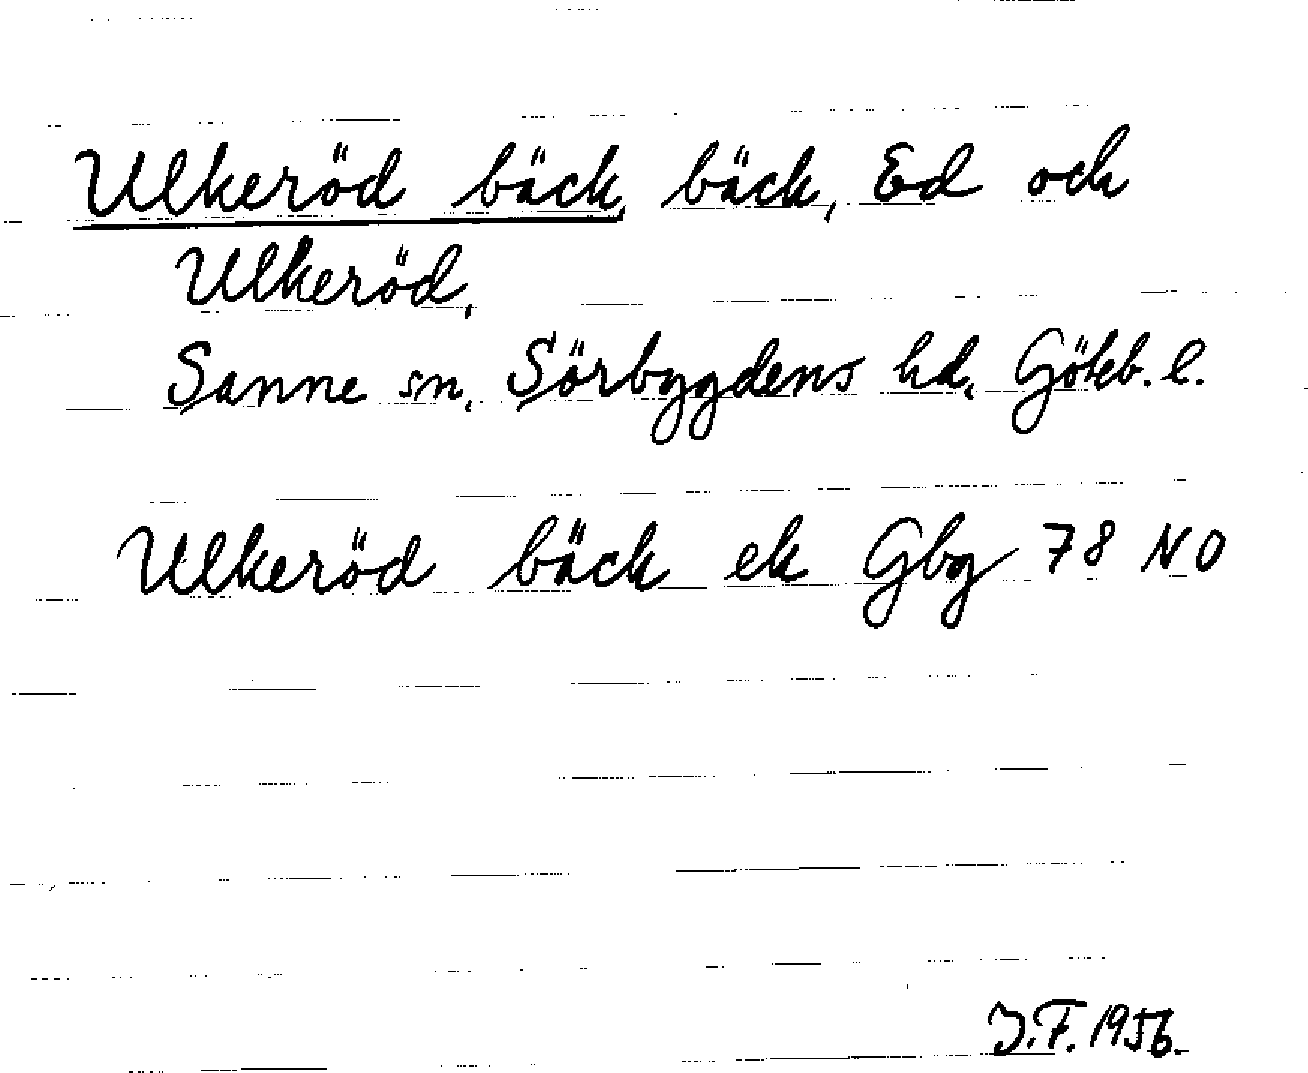 Ulkeröd bäck, bäck, Ed och
Ulkeröd,
Sanne sn, Sörbygdens hd, Göteb. l.
Ulkeröd bäck ek Gbg 78 NO
J.F. 1956.